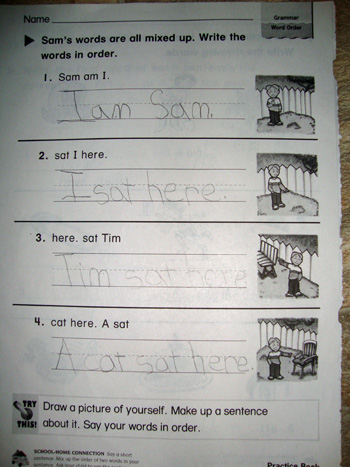 Name
Grammar
Word Order
Sam's words are all mixed up. Write the
words in order.
1. Sam am I.
I am Sam.
2. sat I here.
I sat here.
3. here. sat Tim
Tim sat here
4. cat here. A sat
A cat sat here.
TRY
THIS!
Draw a picture of yourself. Make up a sentence
about it. Say your words in order.
SCHOOL-HOME CONNECTION Say a short
sentence. Mix up the order of two words in your
Practice Book